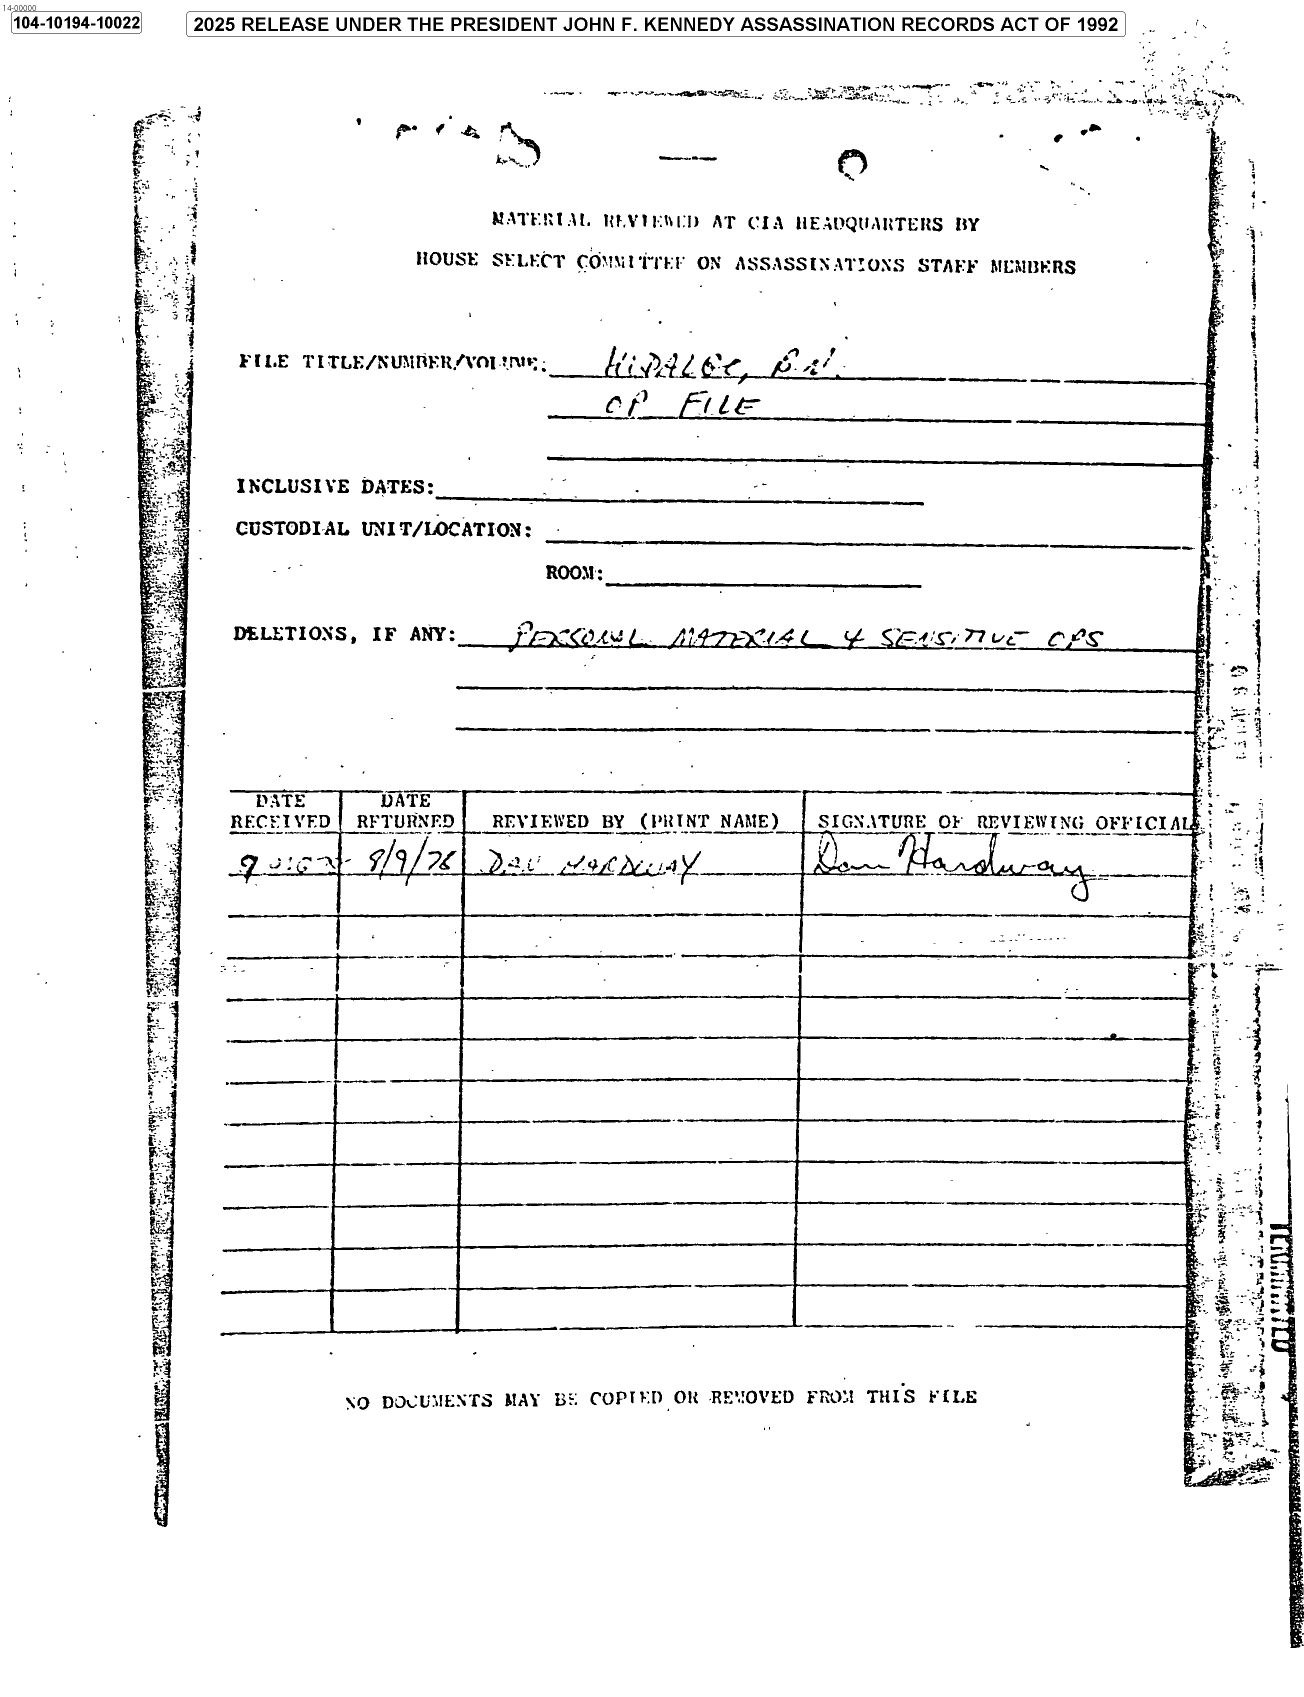 14-00000
104-10194-10022
2025 RELEASE UNDER THE PRESIDENT JOHN F. KENNEDY ASSASSINATION RECORDS ACT OF 1992
MATERIAL REVIEWED AT CIA HEADQUARTERS BY
HOUSE SELECT COMMITTEE ON ASSASSINATIONS STAFF MEMBERS
FILE TITLE/NUMBER/VOLUME:
OP FILE
INCLUSIVE DATES:
CUSTODIAL UNIT/LOCATION:
ROOM:
DELETIONS, IF ANY: PERSONAL MATERIAL & SENSITIVE OPS
DATE RECEIVED DATE RETURNED REVIEWED BY (PRINT NAME) SIGNATURE OF REVIEWING OFFICIAL
9 8/9/78 DAN HARDWAY Dan Hardway
NO DOCUMENTS MAY BE COPIED OR REMOVED FROM THIS FILE